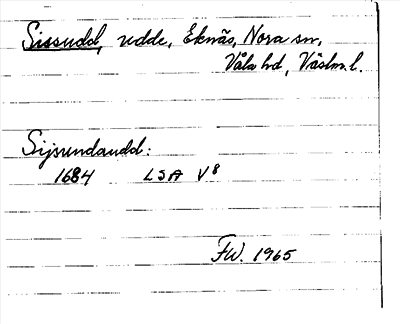 Sissudd, udde, Eknäs, Nora sn,
Våla hd, Västm.l.
Sijsundaudd:
1684 LSA V8
FW. 1965